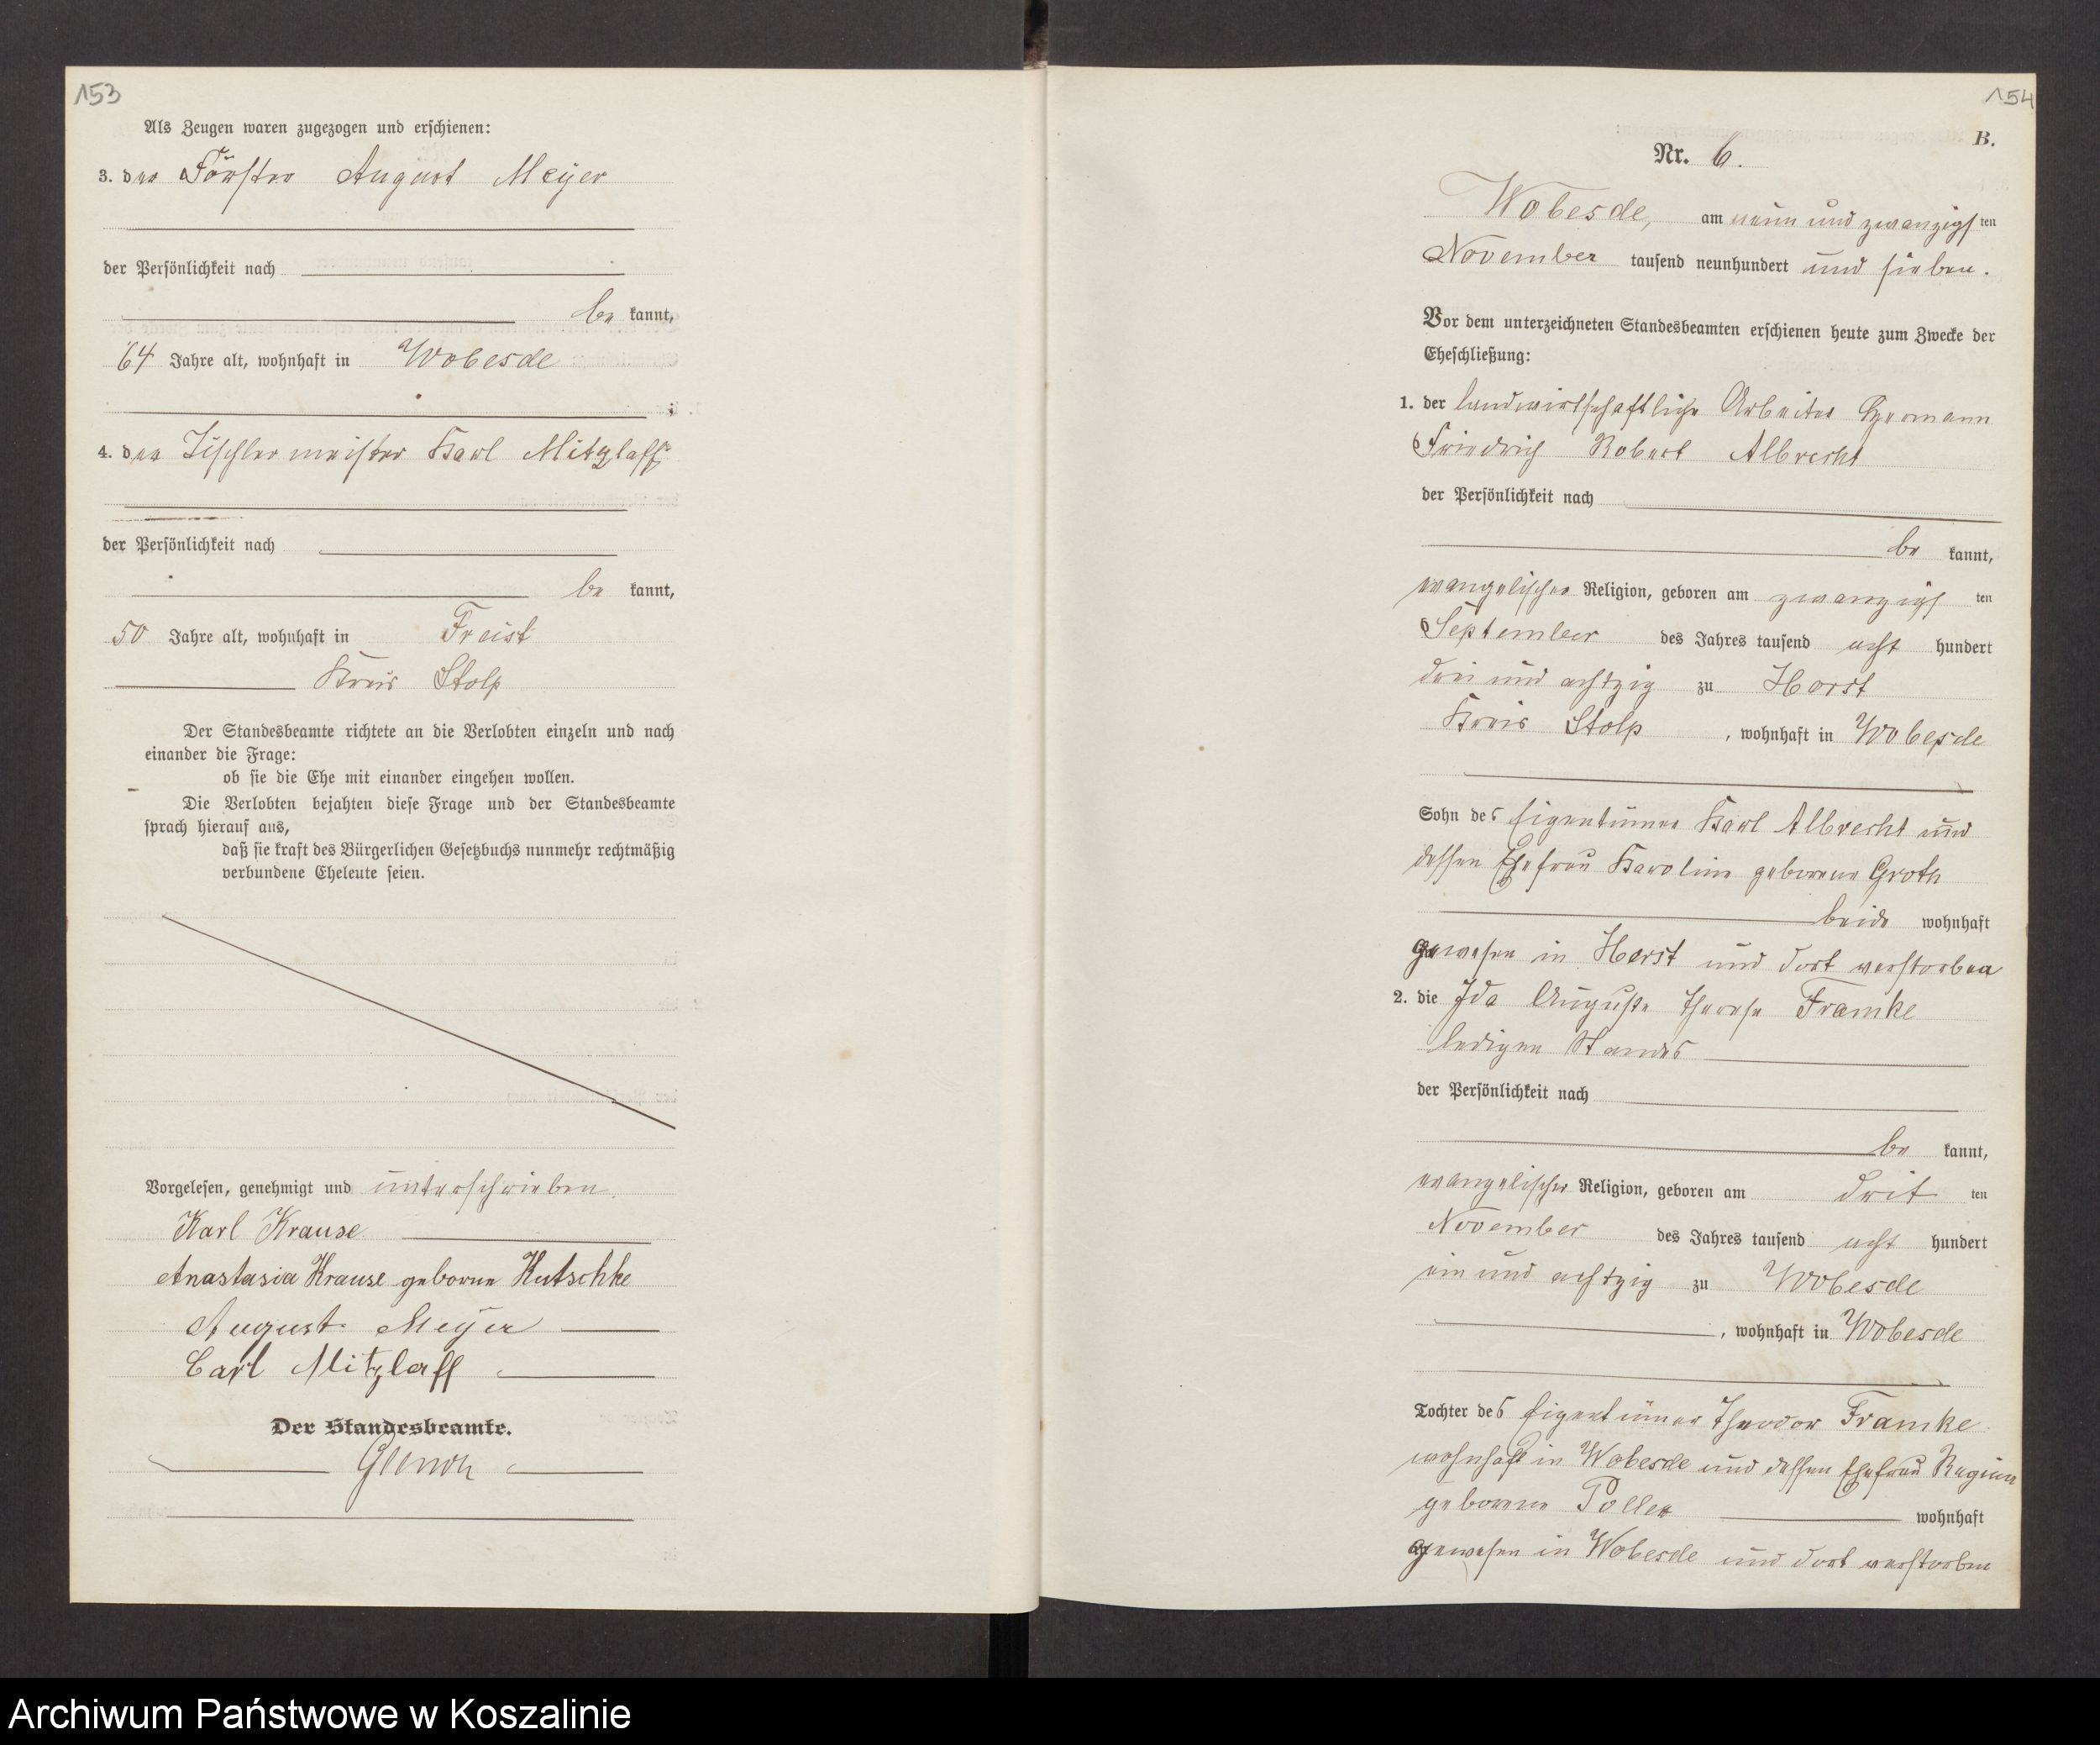 153
Als Zeugen waren zugezogen und erschienen:
3. der Förster August Meyer
der Persönlichkeit nach
be kannt,
64 Jahre alt, wohnhaft in Wobesde
;
4. der Tischlermeister Karl Mitzlaff
der Persönlichkeit nach
be kannt,
50 Jahre alt, wohnhaft in Freist
Kreis Stolp
Der Standesbeamte richtete an die Verlobten einzeln und nach
einander die Frage:
ob sie die Ehe mit einander eingehen wollen.
Die Verlobten bejahten diese Frage und der Standesbeamte
sprach hierauf aus,
daß sie kraft des Bürgerlichen Gesetzbuchs nunmehr rechtmäßig
verbundene Eheleute seien.
Vorgelesen, genehmigt und unterschrieben.
Karl Krause
Anastasia Krause geborne Kutschke
August Meyer
Carl Mitzlaff
Der Standesbeamte.
154
B.
Nr. 6.
Wobesde, am neun und zwanzigsten
November tausend neunhundert und sieben.
Vor dem unterzeichneten Standesbeamten erschienen heute zum Zwecke der
Eheschließung:
1. der landwirtschaftliche Arbeiter Hermann
Friedrich Robert Albrecht
der Persönlichkeit nach
be kannt,
evangelischer Religion, geboren am zwanzigsten
September des Jahres tausend acht hundert
drei und achtzig zu Horst
Kreis Stolp, wohnhaft in Wobesde
Sohn des Eigentümer Karl Albrecht und
dessen Ehefrau Karoline geborene Groth
beide wohnhaft
gewesen in Horst und dort verstorben
2. die Ida Auguste Therese Framke
ledigen Standes
der Persönlichkeit nach
be kannt,
evangelischer Religion, geboren am dritten
November des Jahres tausend acht hundert
ein und achtzig zu Wobesde
, wohnhaft in Wobesde
Tochter des Eigentümer Theodor Framke
wohnhaft in Wobesde und dessen Ehefrau Regine
geborene wohnhaft
gewesen in Wobesde und dort verstorben
Archiwum Państwowe w Koszalinie